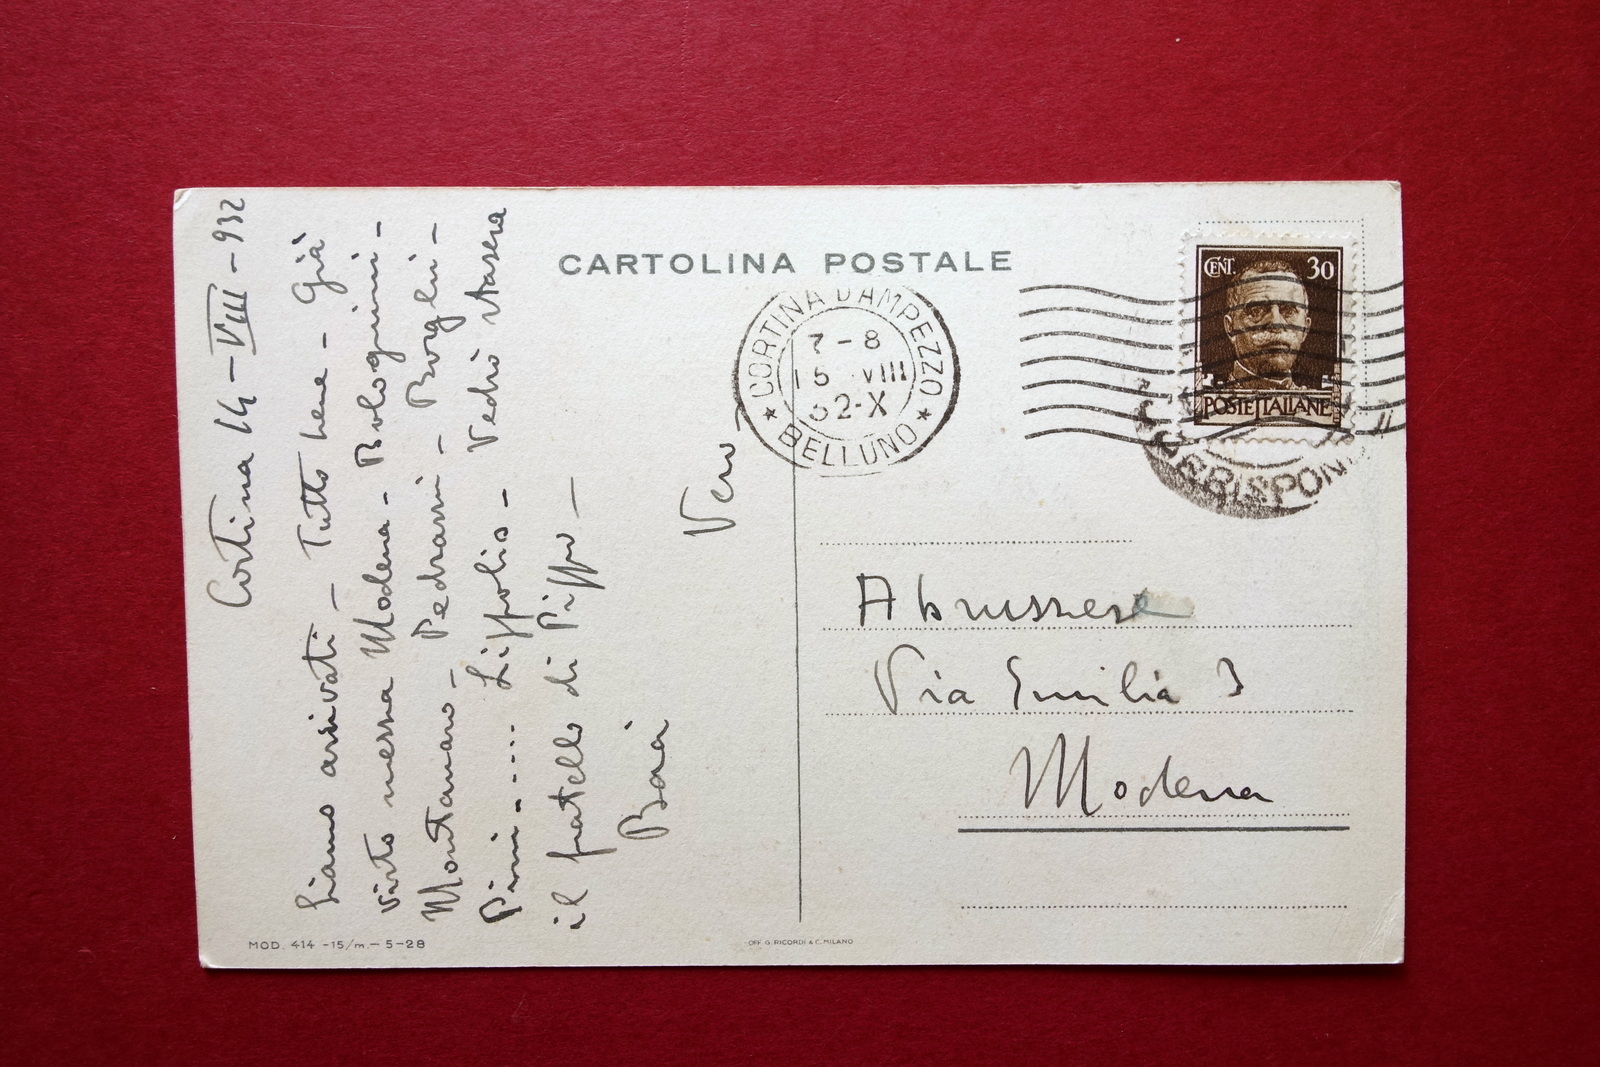 CARTOLINA POSTALE
Cortina 14 - VIII - 932
Siamo arrivati - Tutto bene - Già
visto mezza Modena - Bolognini -
Montanaro - Pedrazzi - Boglii -
Pini - .... Lippolis - Vedrò stasera
il fratello di Pippo -
Baci
Vero
CORTINA D'AMPEZZO
7 - 8
15 VIII
32-X
BELLUNO
CENT. 30
POSTE ITALIANE
Abruzzese
Via Emilia 3
Modena
MOD. 414 - 15/m. - 5-28
OFF. G. RICORDI & C. MILANO